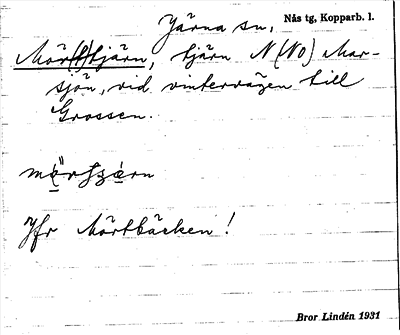 Järna sn, Nås tg, Kopparb. l.
Mör(t)tjärn, tjärn N (NO) Mar-
sjön, vid vintervägen till
Grossen.
Jfr Mörtbäcken!
Bror Lindén 1931